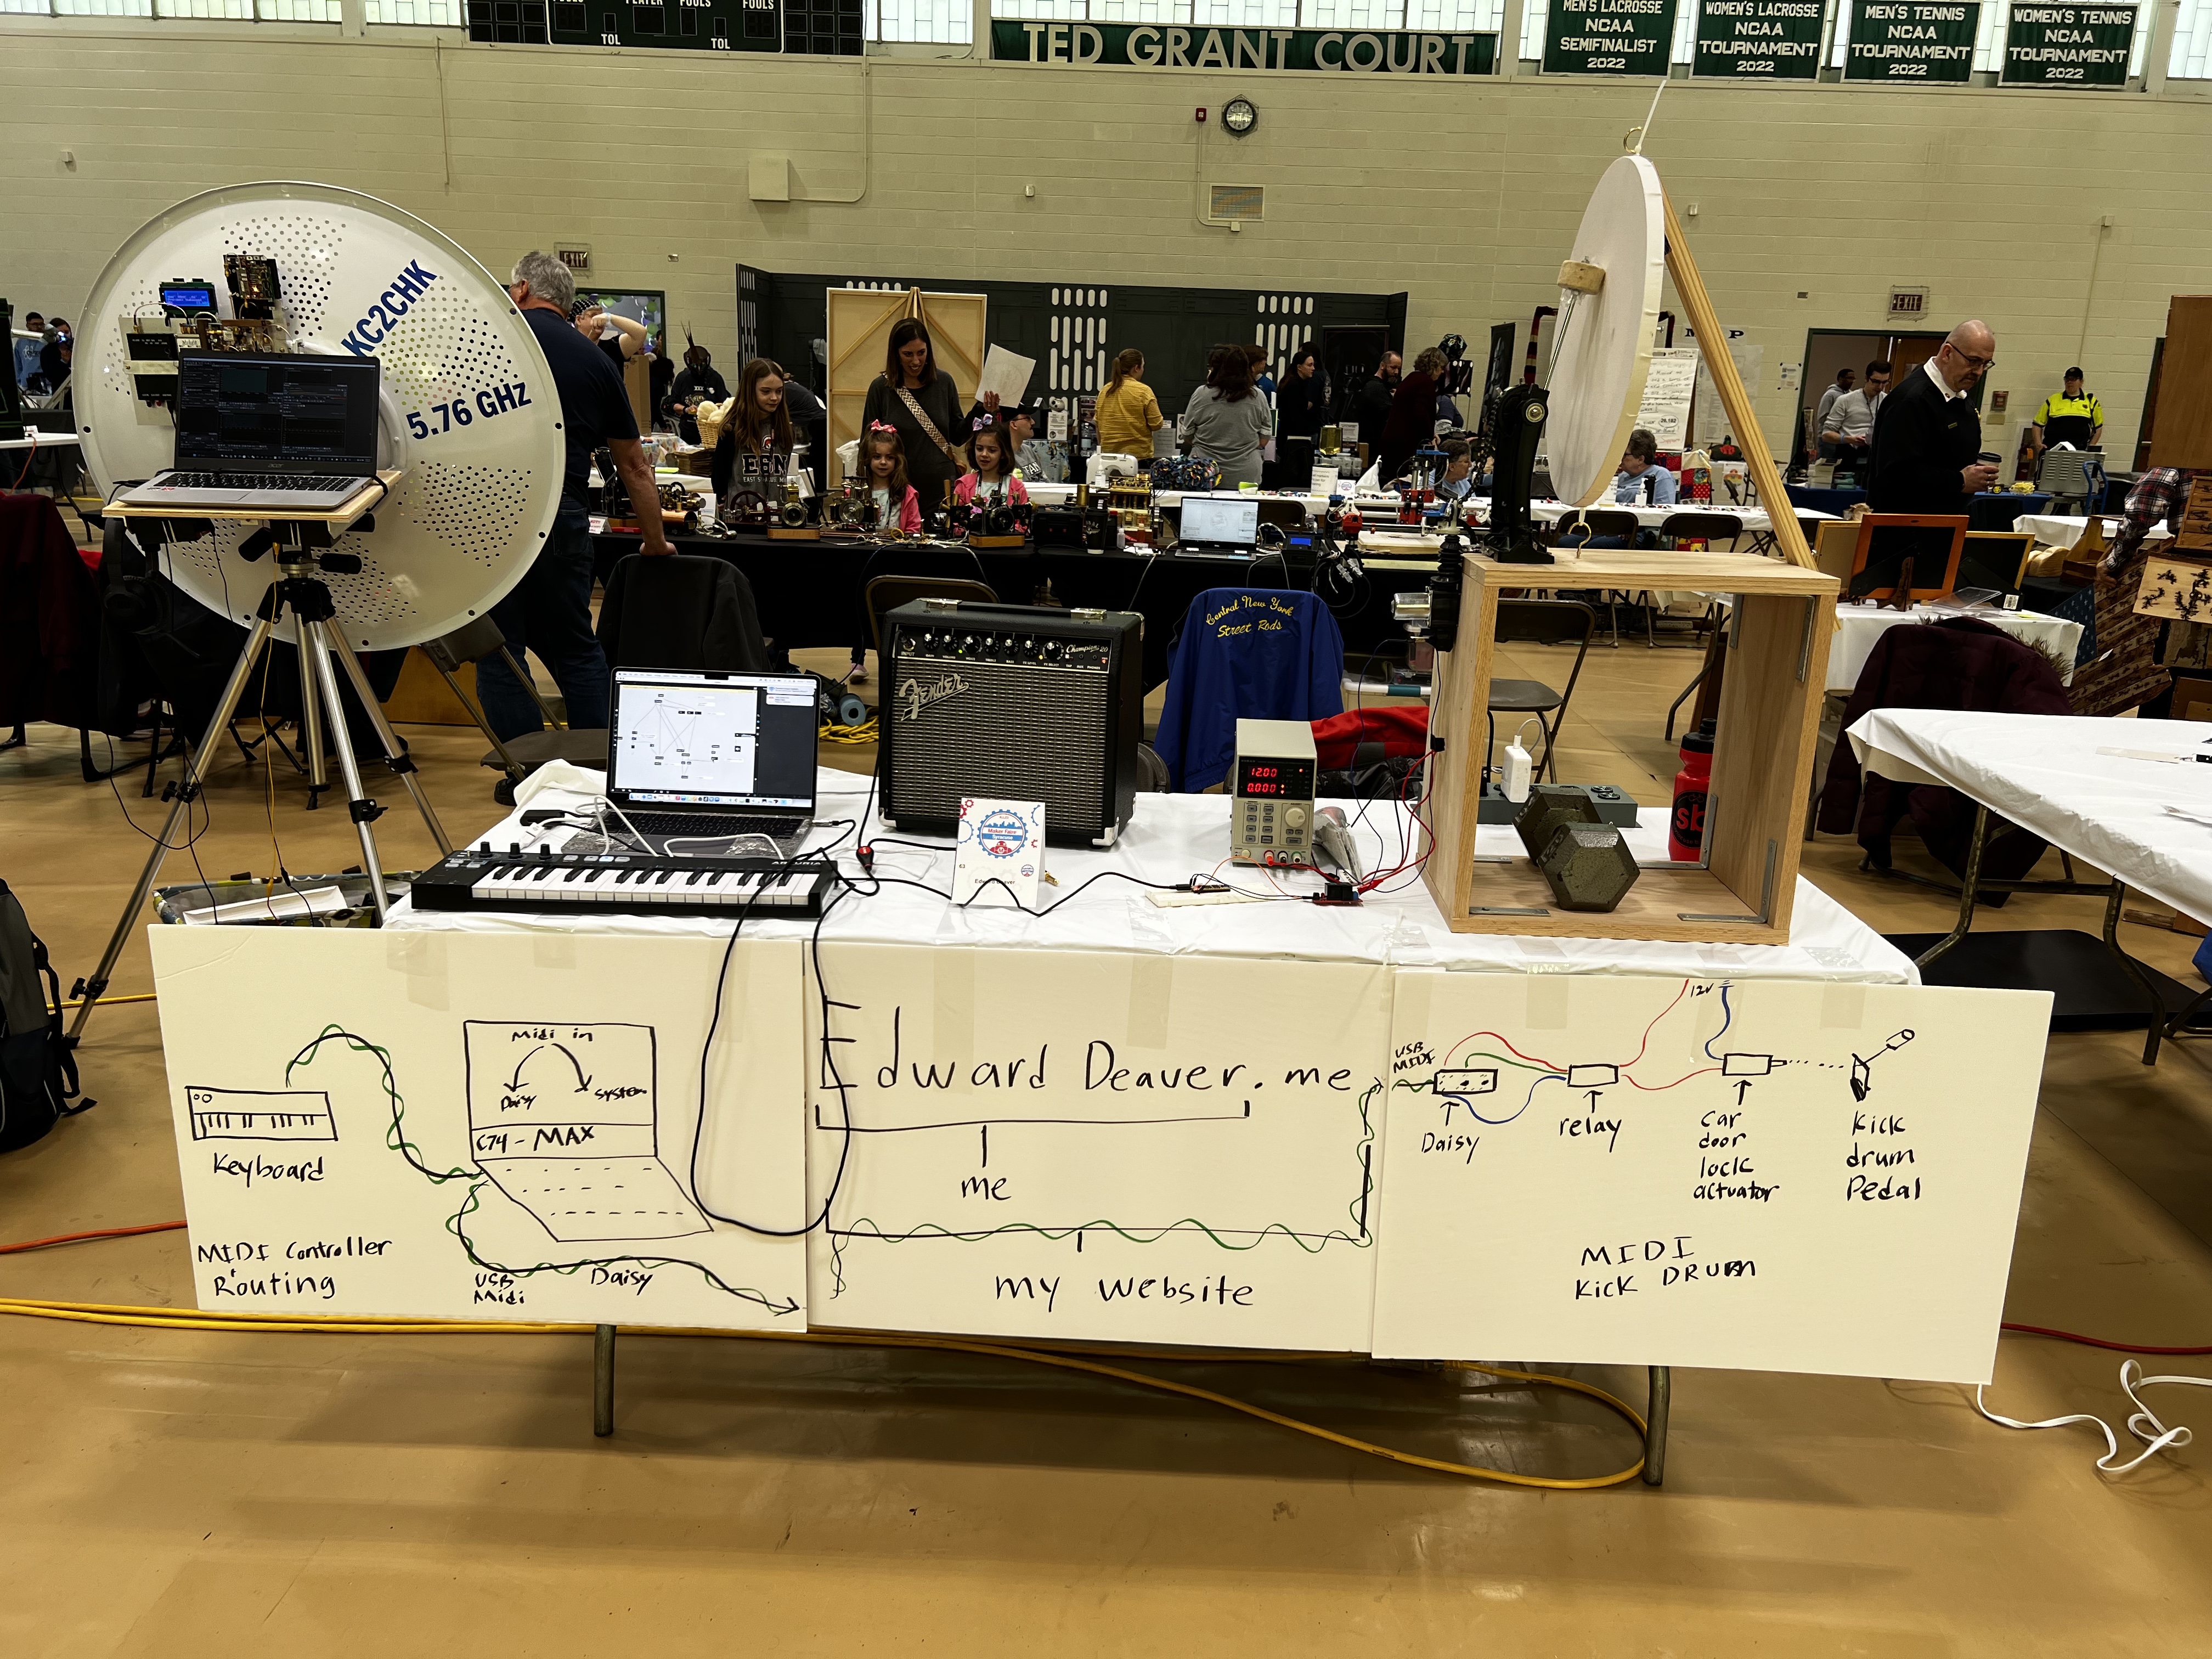 PLAYER
FOULS
FOULS
TOL
TOL
TED GRANT COURT
MEN'S LACROSSE
NCAA
SEMIFINALIST
2022
WOMEN'S LACROSSE
NCAA
TOURNAMENT
2022
MEN'S TENNIS
NCAA
TOURNAMENT
2022
WOMEN'S TENNIS
NCAA
TOURNAMENT
2022
EXIT
EXIT
KC2CHK
5.76 GHz
acer
Central New York
Street Rods
Fender
Champion 20
12.00
0.000
Maker Faire
ARTURIA
Midi in
Daisy
System
C74 - MAX
Keyboard
MIDI Controller
+
Routing
USB
Midi
Daisy
Edward Deaver.me
me
my website
USB
MIDI
12V
Daisy
relay
car
door
lock
actuator
Kick
drum
Pedal
MIDI
Kick DRUM